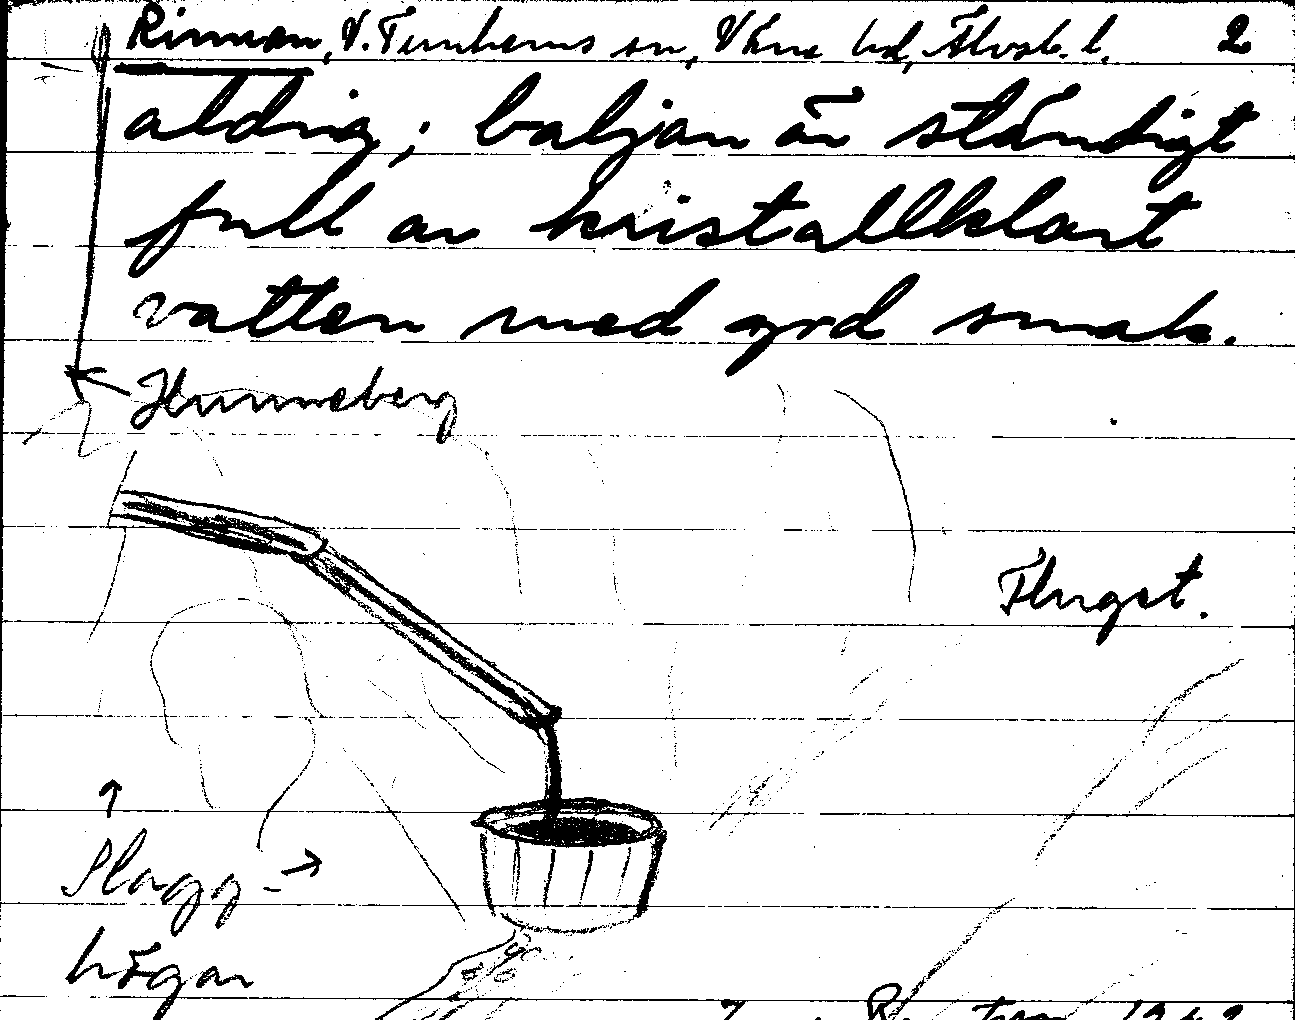 Rinnan, V. Tunhems sn, Väne hd, Älvsb. l. 2
aldrig; baljan är ständigt
full av kristallklart
vatten med god smak.
Hunneberg
Flaget.
Slagg-
högar